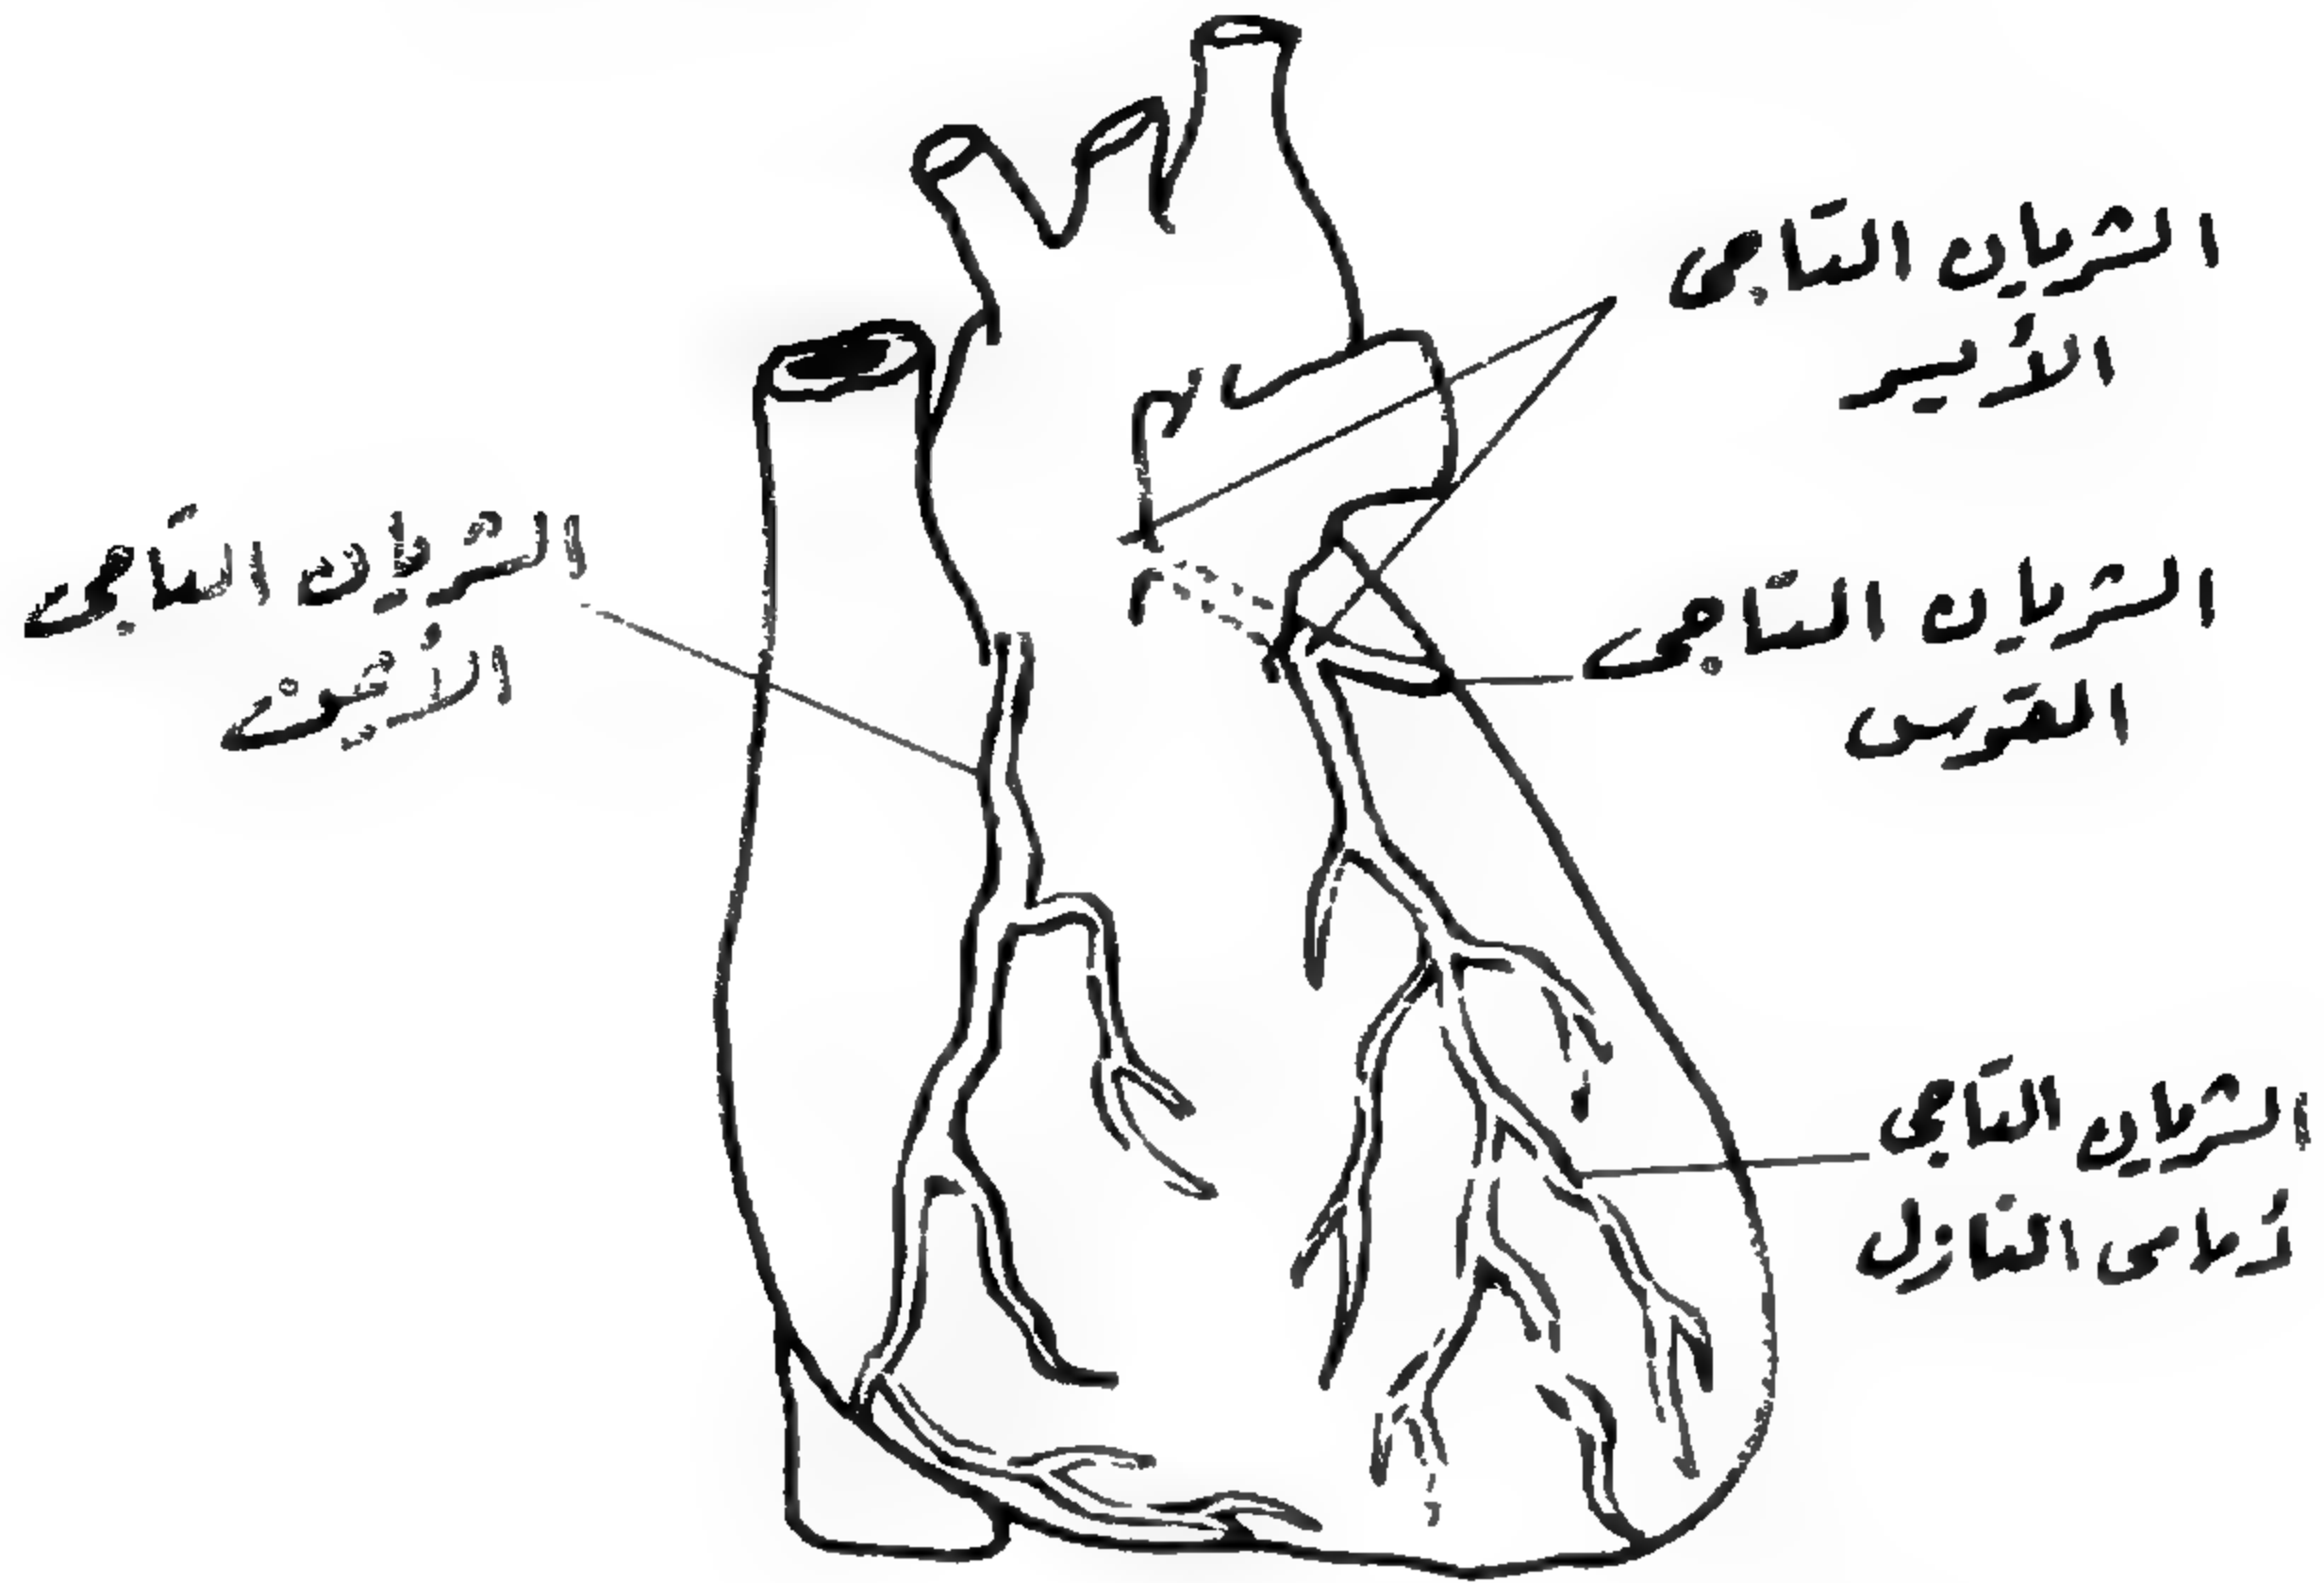 الشريان التاجى
الأيسر
الشريان التاجى
الأيمن
الشريان التاجى
المقوس
الشريان التاجى
أمامى النازل